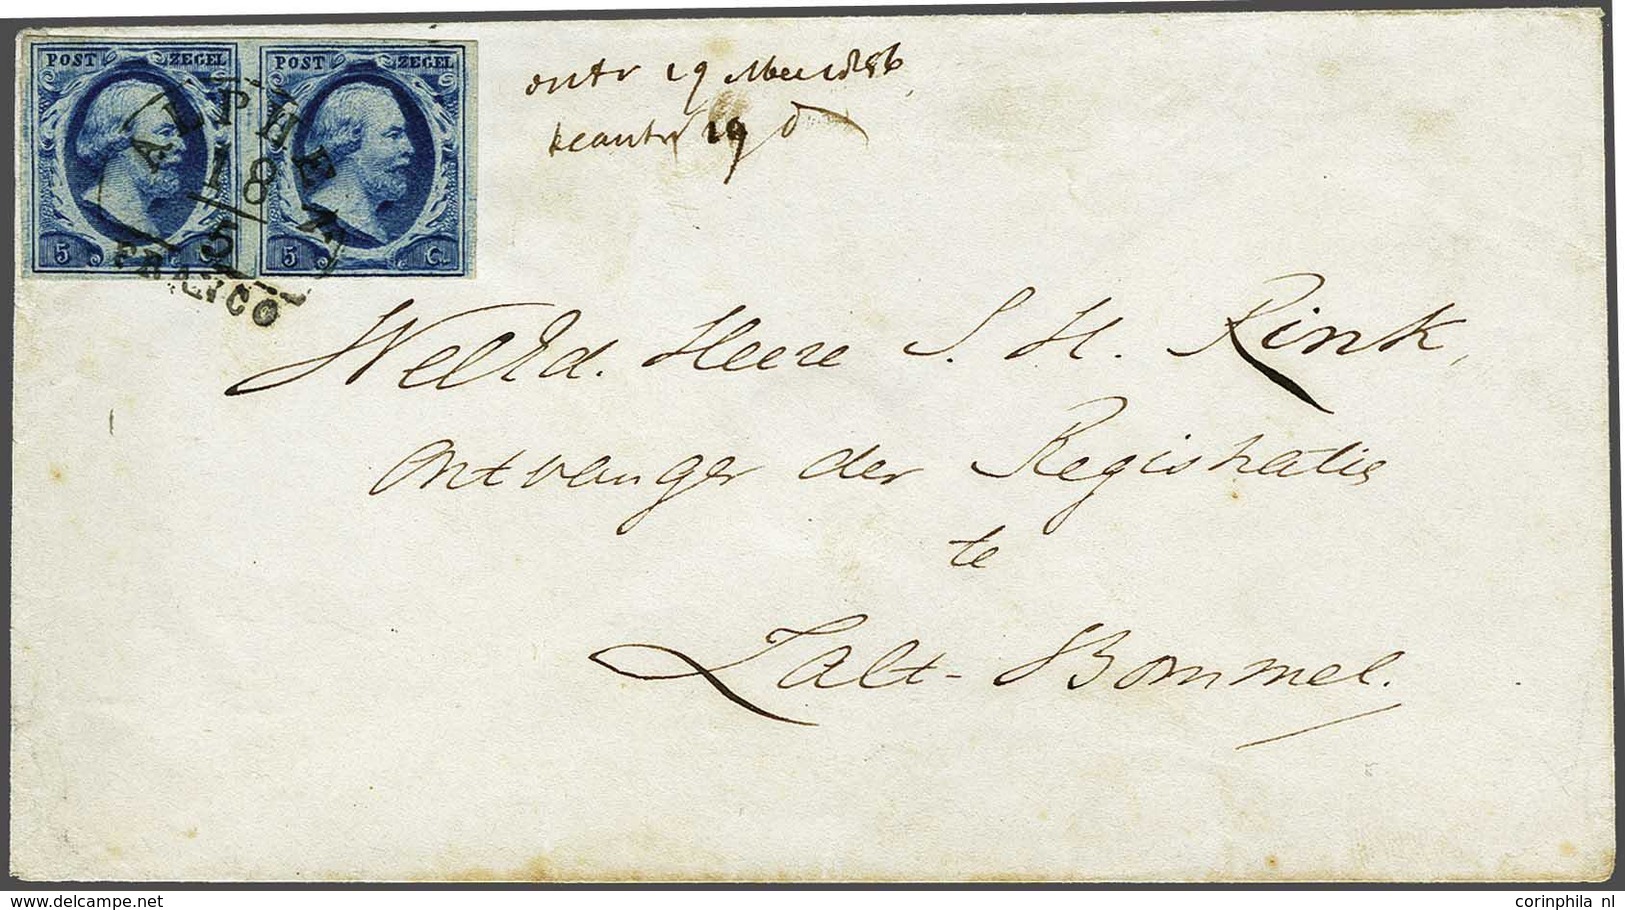 POST ZEGEL POST ZEGEL
5 5 C.
ALPHEN
18
5
FRANCO
ontv 19 Mei 1856
beantw 19 d
WelEd. Heere S. H. Rink,
Ontvanger der Registratie
te
Zalt-Bommel.
corinphila nl